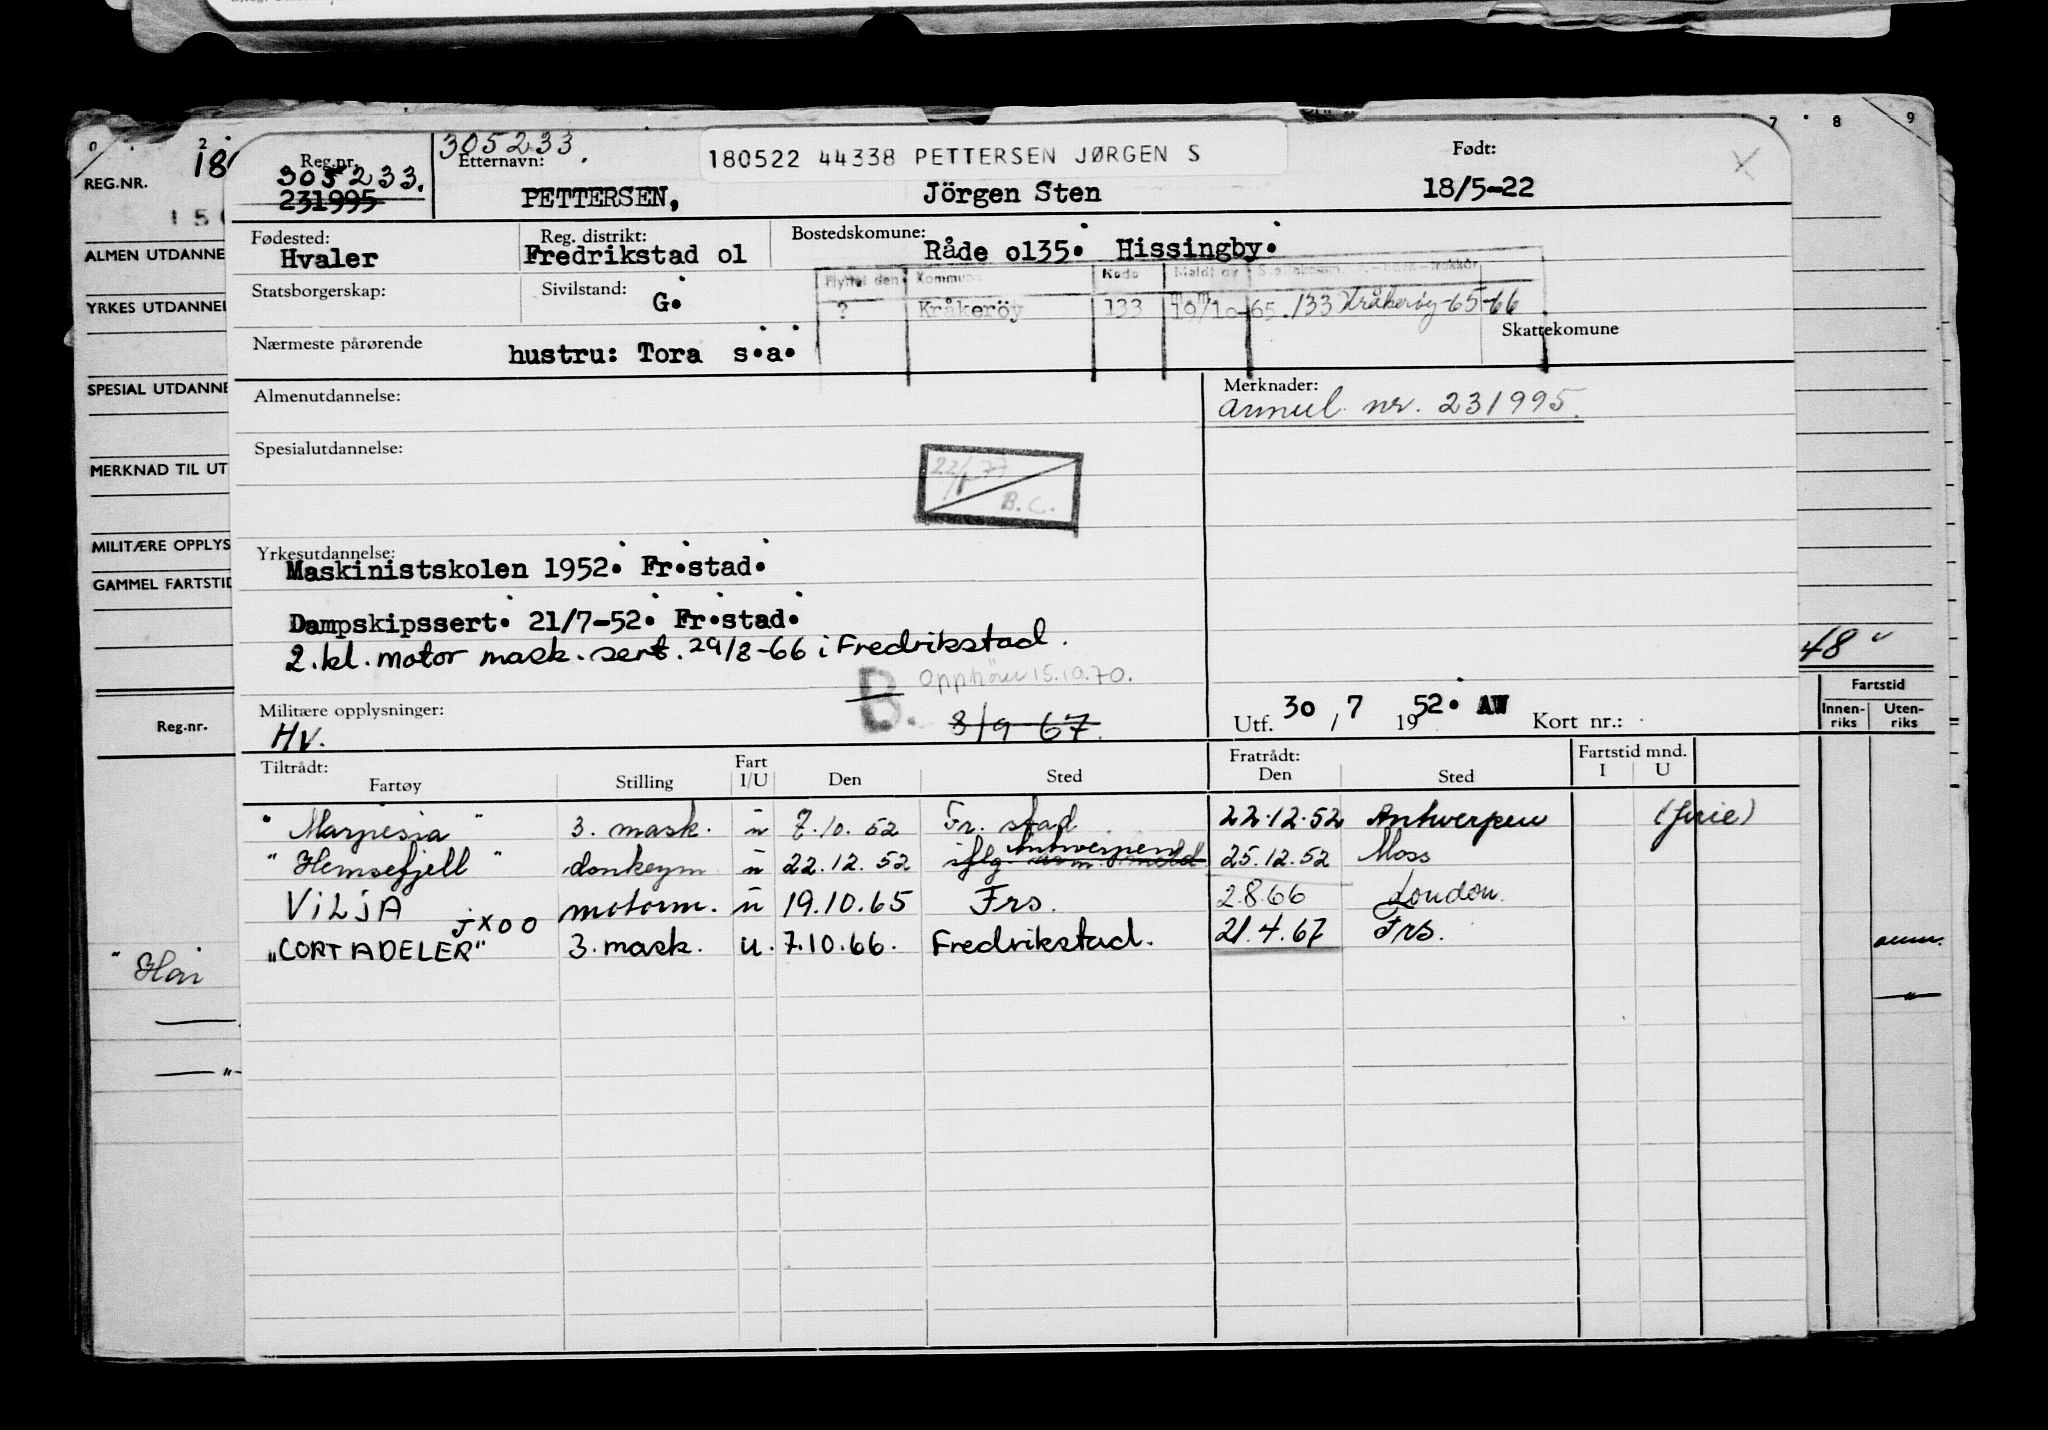 0 2 7 8 9
REG.NR. 18
ALMEN UTDANNE
YRKES UTDANNEL
SPESIAL UTDANNE
MERKNAD TIL UT
MILITÆRE OPPLYS
GAMMEL FARTSTID
48 "
Fartstid
Innen-riks Uten-riks
Reg.nr.
Reg.nr.
305233.
231995
305233.
Etternavn:
180522 44338 PETTERSEN JØRGEN S
Født:
PETTERSEN, Jörgen Sten 18/5-22
Fødested: Reg. distrikt: Bostedskomune:
Hvaler Fredrikstad 01 Råde 0135. Hissingby.
Flyttet den Kommune Kode Meldt av
Statsborgerskap: Sivilstand: G.
? Kråkeröy 133 19/10-65. 133 Kråkerøy-65-66
Skattekomune
Nærmeste pårørende hustru: Tora s.a.
Almenutdannelse:
Merknader:
annul. nr. 231995.
Spesialutdannelse:
B.C.
Yrkesutdannelse:
Maskinistskolen 1952. Fr.stad.
Dampskipssert. 21/7-52. Fr.stad.
2.kl. motor mask. sert. 29/8-66 i Fredrikstad.
B. Opphör 15.10.70.
Militære opplysninger: 8/9-67.
HV.
Utf. 30 / 7 1952. AW Kort nr.:
Tiltrådt: Fart Fratrådt: Fartstid mnd.
Fartøy Stilling I/U Den Sted Den Sted I U
" Marpesia " 3. mask. u 7.10.52 Fr. stad 22.12.52 Antwerpen
" Hemsefjell " donkeym u 22.12.52 Antwerpen 25.12.52 Moss
VILJA motorm. u 19.10.65 Frs. 2.8.66 London.
JXOO
"CORT ADELER" 3. mask. u. 7.10.66. Fredrikstad. 21.4.67 Frs.